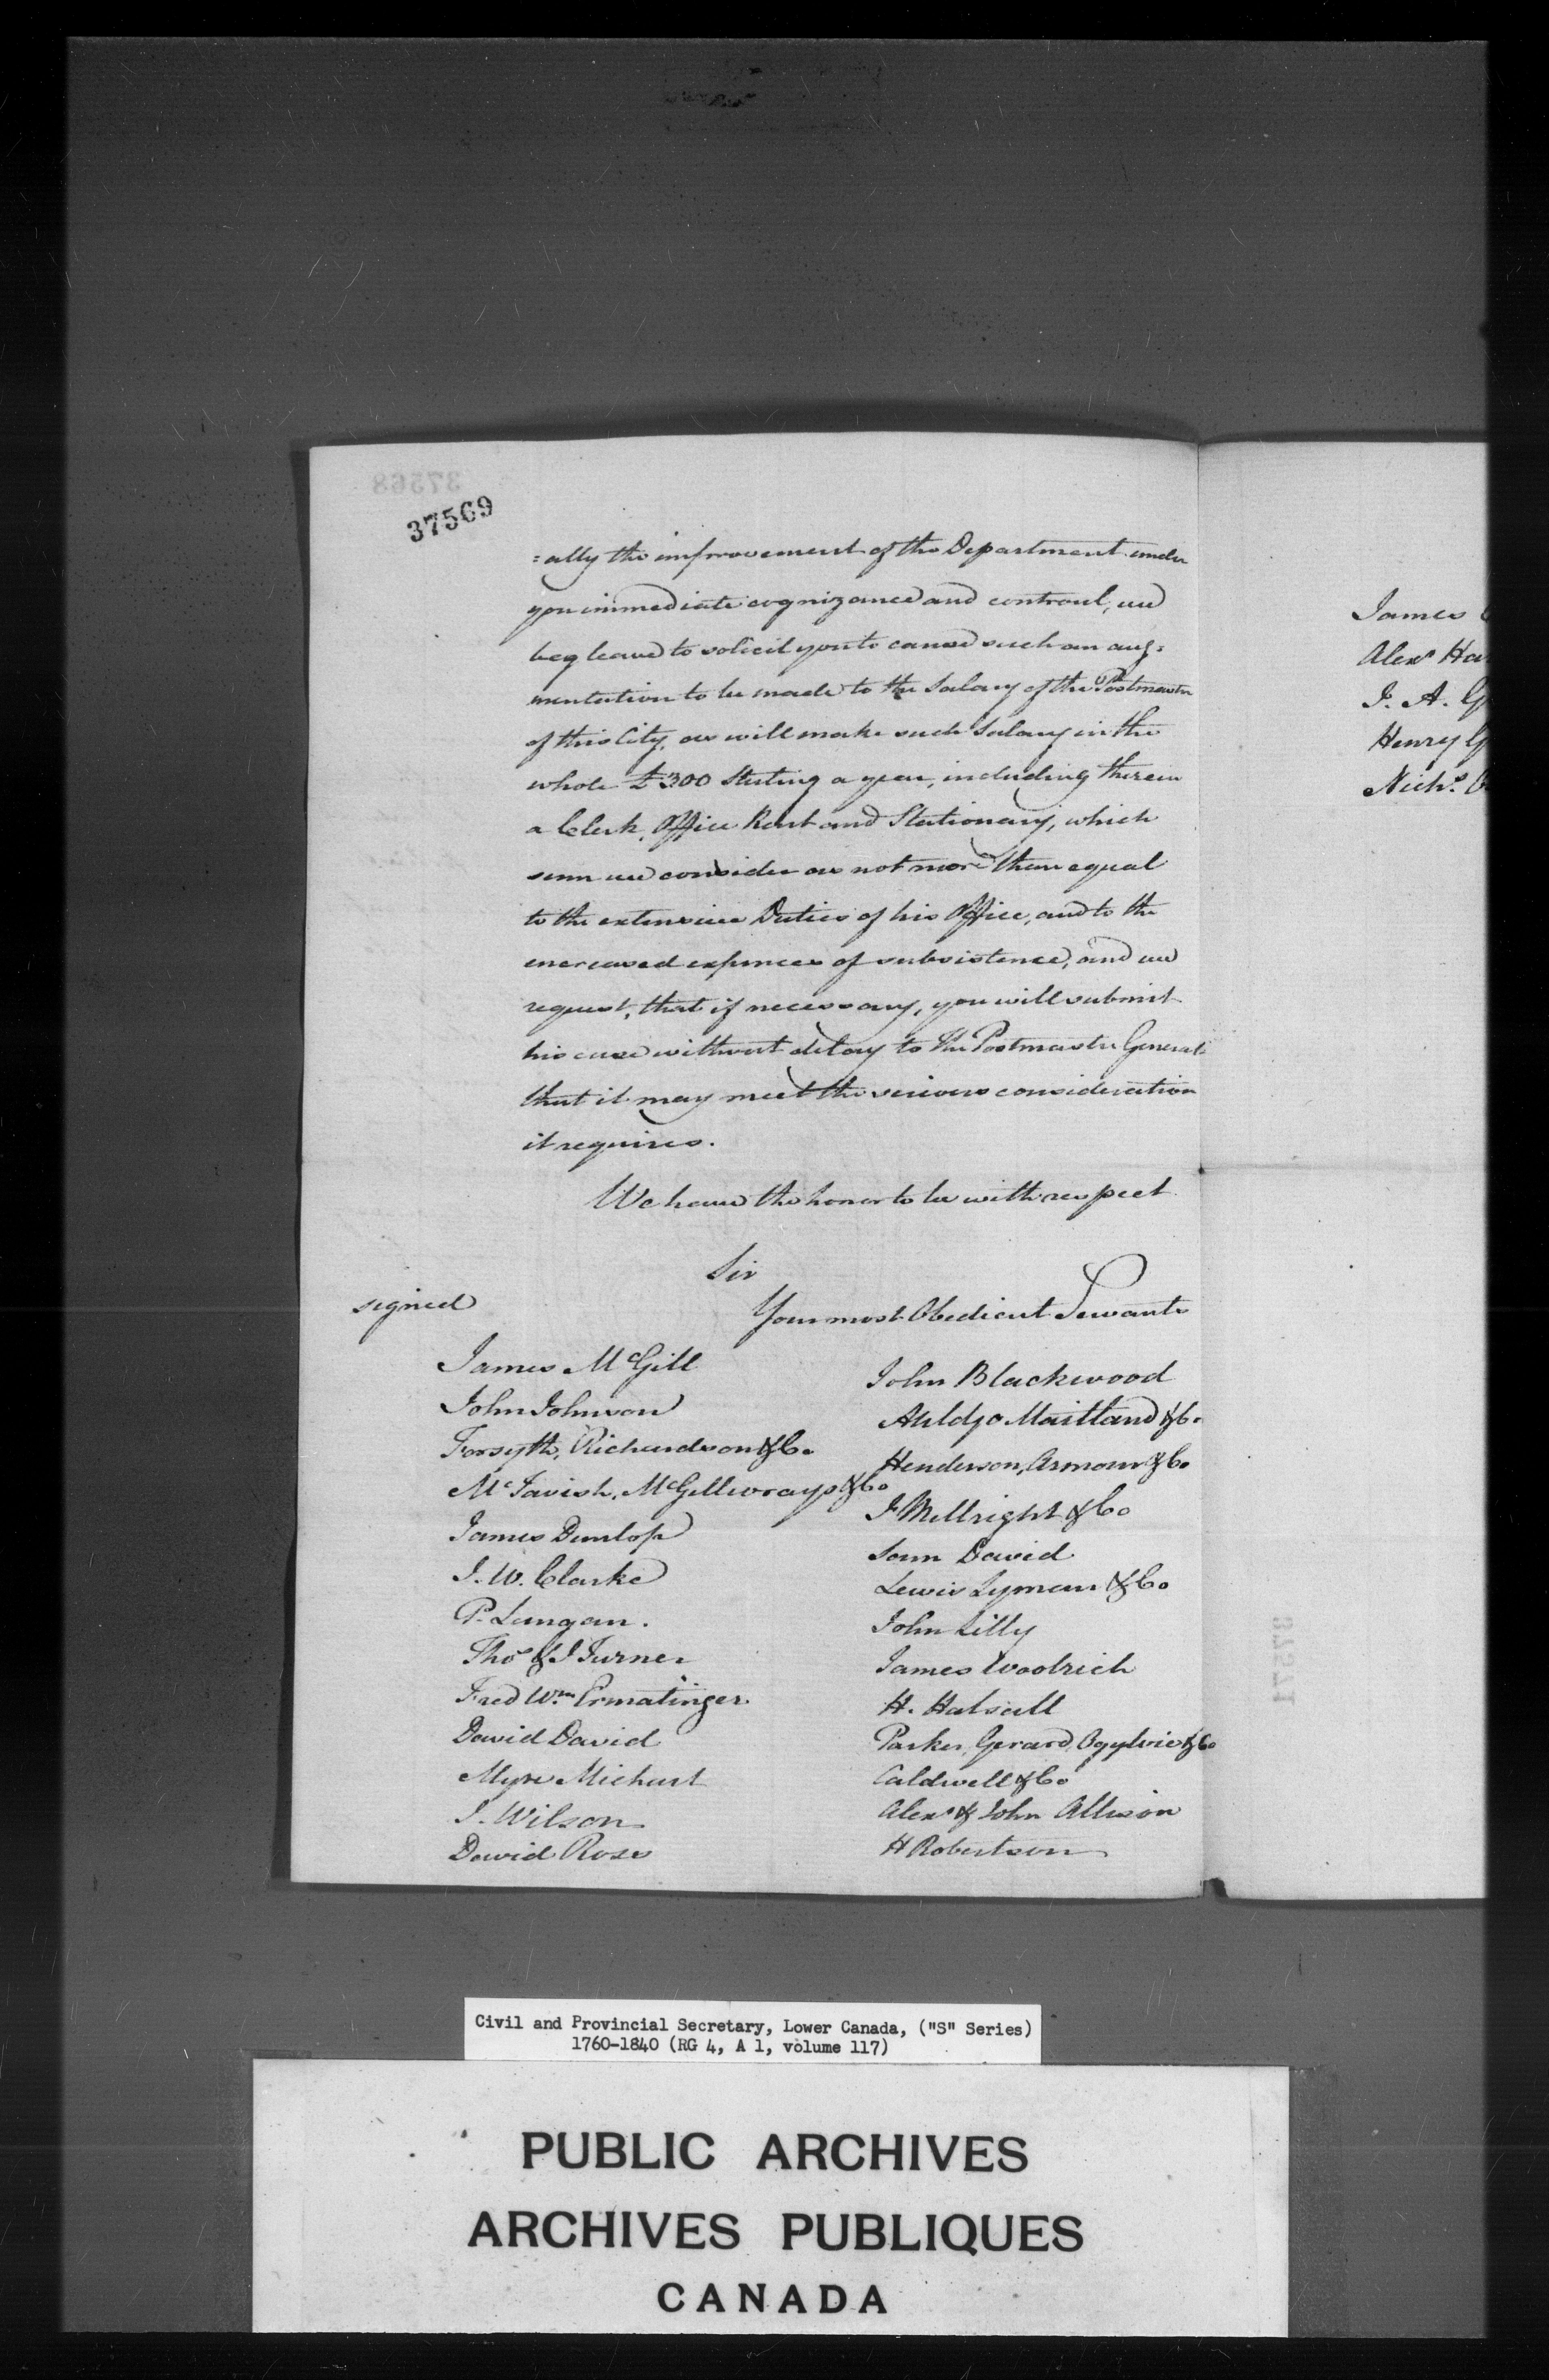 37569
=ally the improvement of the Department under
you immediate cognizance and controul, we
beg leave to solicit you to cause such an aug=
mentation to be made to the Salary of the Postmaster
of this City, as will make such Salary in the
whole £300 Sterling a year, including therein
a Clerk, Office Rent and Stationary, which
sum we consider as not more than equal
to the extensive Duties of his Office, and to the
encreased expences of subsistence, and we
request, that if necessary, you will submit
his case without delay to the Postmaster General
that it may meet the serious consideration
it requires.
We have the honor to be with respect
Sir
Your most Obedient Servants
signed
James McGill
John Johnson
Forsyth, Richardson & Co.
McTavish, McGillivrays & Co
James Dunlop
I. W. Clarke
P. Langan.
Thos & J Turner
Fred Wm Ermatinger
David David
Myer Michael
J. Wilson
David Ross
John Blackwood
Auldjo Maitland & Co.
Henderson, Armour & Co
J Millright & Co
Saml David
Lewis Lyman & Co
John Lilly
James Woolrich
H. Halsall
Parker, Gerard, Ogylvie & Co
Caldwell & Co
Alexr & John Allison
H Robertson
James
Alexr
J. A.
Henry
Nichs.
Civil and Provincial Secretary, Lower Canada, ("S" Series)
1760-1840 (RG 4, A 1, volume 117)
PUBLIC ARCHIVES
ARCHIVES PUBLIQUES
CANADA